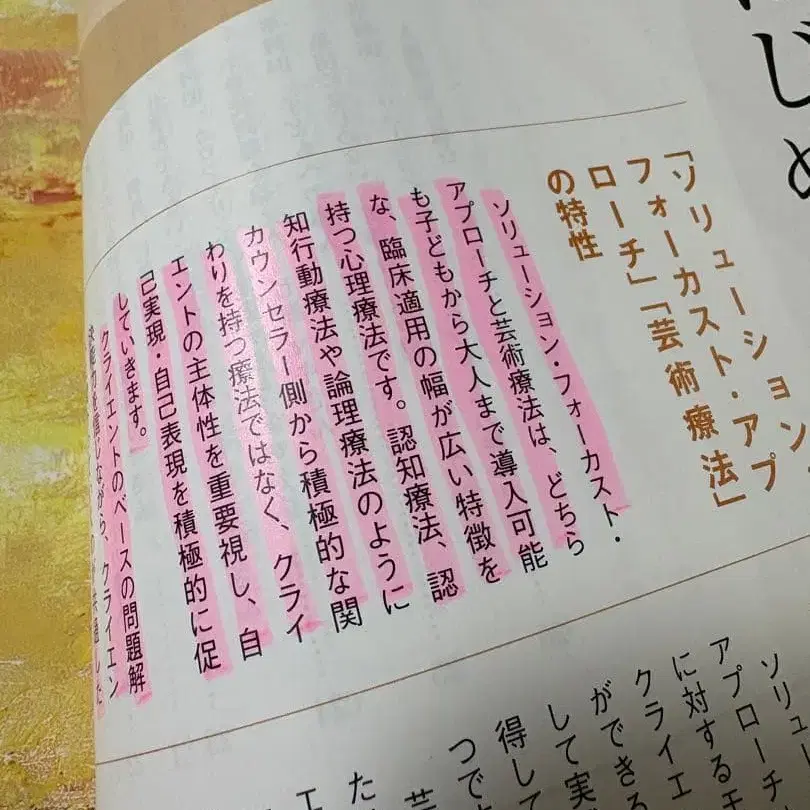 はじめ
「ソリューション・
フォーカスト・アプ
ローチ」「芸術療法」
の特性
ソリューション・フォーカスト・
アプローチと芸術療法は、どちら
も子どもから大人まで導入可能
な、臨床適用の幅が広い特徴を
持つ心理療法です。認知療法、認
知行動療法や論理療法のように
カウンセラー側から積極的な関
わりを持つ療法ではなく、クライ
エントの主体性を重要視し、自
己実現・自己表現を積極的に促
していきます。
クライエントのペースの問題解
決能力を信じながら、クライエン
ソリュー
アプローチ
に対する
クライエ
ができる
して実
得して
つで
芸
エ
た